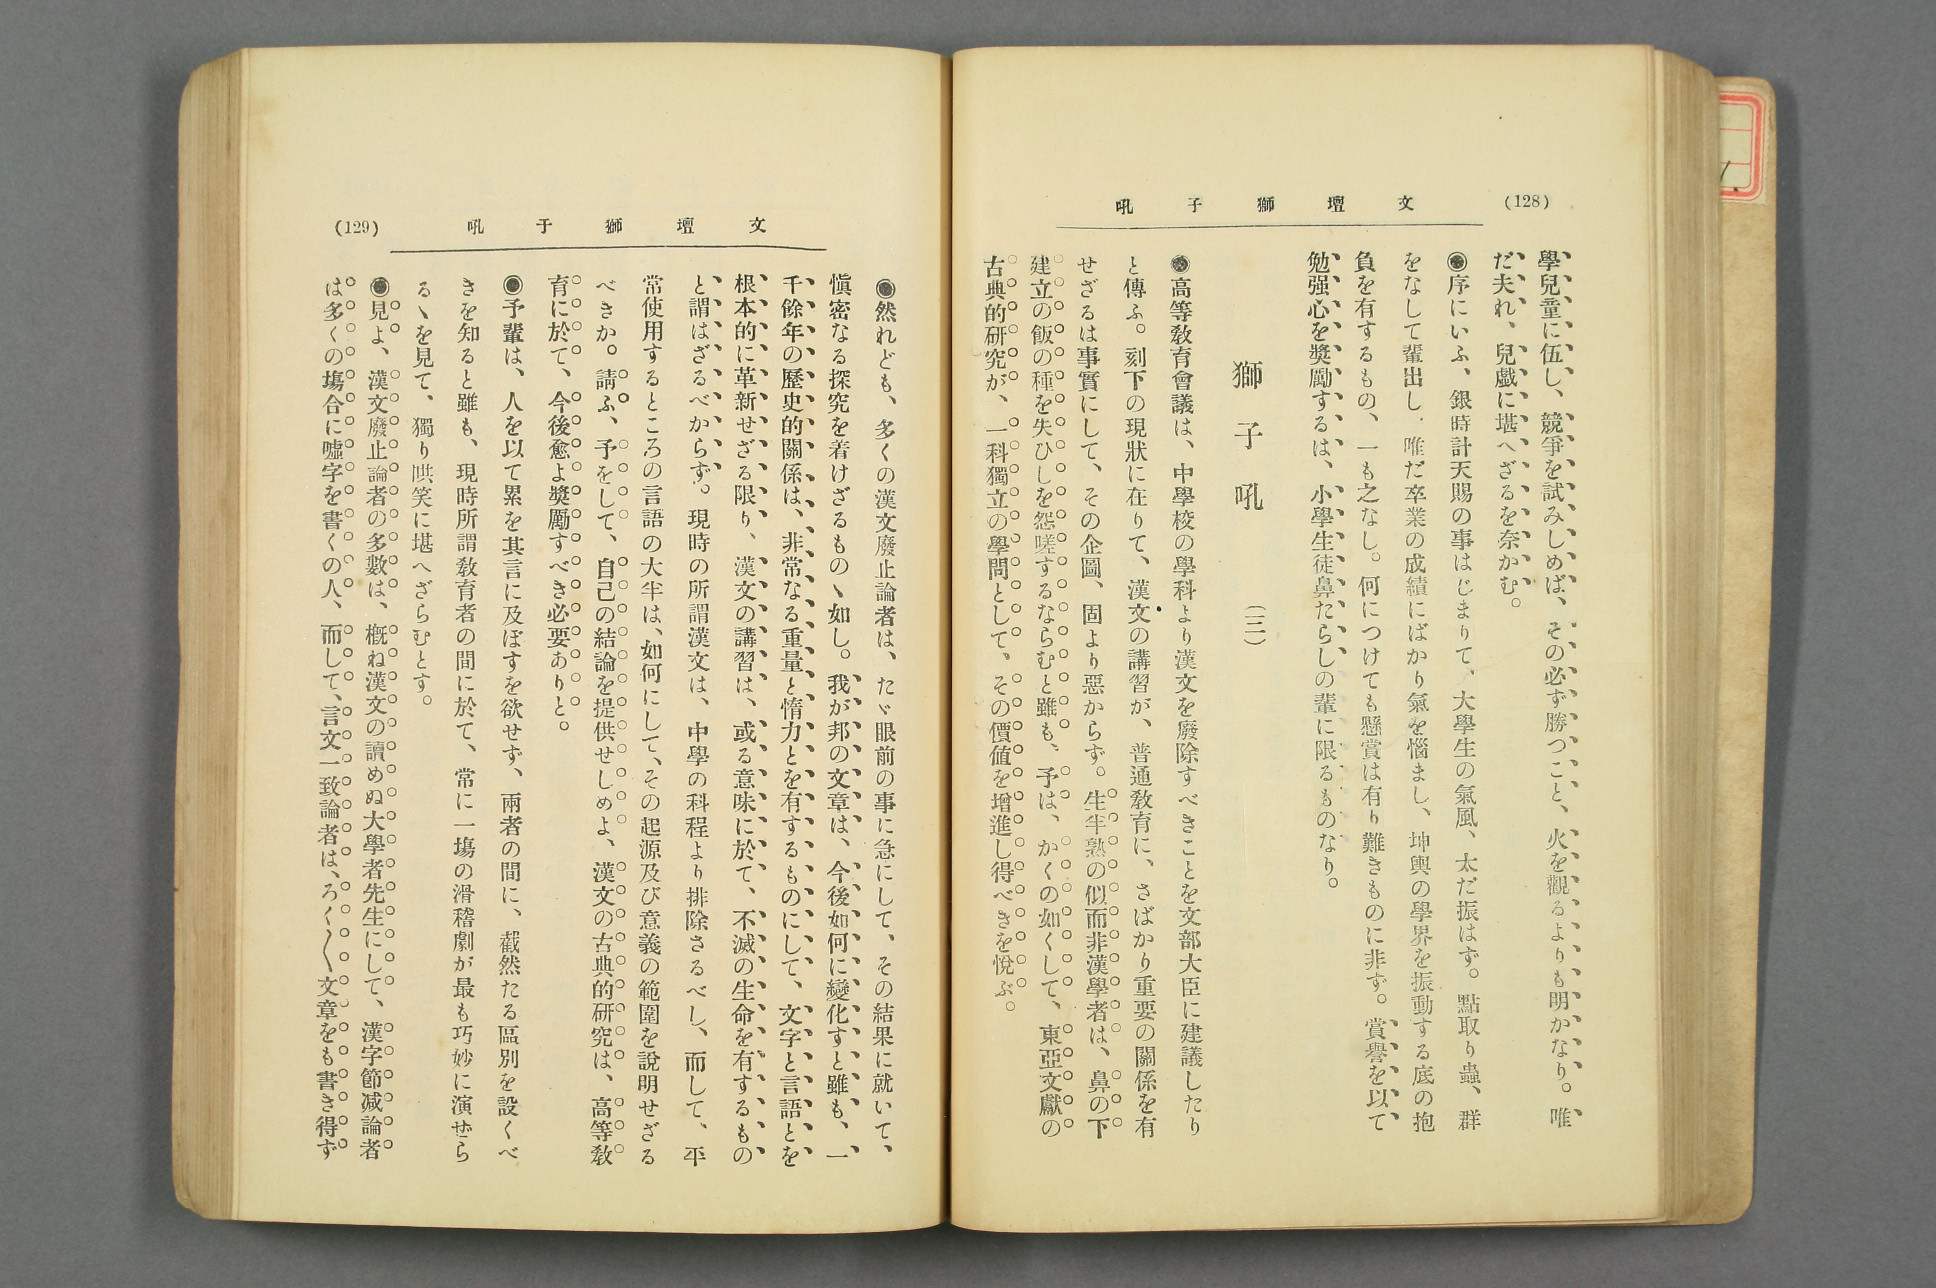 (128)
文壇獅子吼
學兒童に伍し、競爭を試みしめば、その必ず勝つこと、火を觀るよりも明かなり。唯
だ夫れ、兒戲に堪へざるを奈かむ。
◉序にいふ、銀時計天賜の事はじまりて、大學生の氣風、太だ振はず。點取り蟲、群
をなして輩出し、唯だ卒業の成績にばかり氣を惱まし、坤輿の學界を振動する底の抱
負を有するもの、一も之なし。何につけても懸賞は有り難きものに非ず。賞譽を以て
勉强心を奬勵するは、小學生徒鼻たらしの輩に限るものなり。
獅子吼 (三)
◉高等敎育會議は、中學校の學科より漢文を廢除すべきことを文部大臣に建議したり
と傳ふ。刻下の現狀に在りて、漢文の講習が、普通敎育に、さばかり重要の關係を有
せざるは事實にして、その企圖、固より惡からず。生半熟の似而非漢學者は、鼻の下
建立の飯の種を失ひしを怨嗟するならむと雖も、予は、かくの如くして、東亞文獻の
古典的硏究が、一科獨立の學問として、その價値を增進し得べきを悅ぶ。
文壇獅子吼
(129)
◉然れども、多くの漢文廢止論者は、たゞ眼前の事に急にして、その結果に就いて、
愼密なる探究を着けざるものゝ如し。我が邦の文章は、今後如何に變化すと雖も、一
千餘年の歷史的關係は、非常なる重量と惰力とを有するものにして、文字と言語とを
根本的に革新せざる限り、漢文の講習は、或る意味に於て、不滅の生命を有するもの
と謂はざるべからず。現時の所謂漢文は、中學の科程より排除さるべし、而して、平
常使用するところの言語の大半は、如何にして、その起源及び意義の範圍を說明せざる
べきか。請ふ、予をして、自己の結論を提供せしめよ、漢文の古典的硏究は、高等敎
育に於て、今後愈よ奬勵すべき必要ありと。
◉予輩は、人を以て累を其言に及ぼすを欲せず、兩者の間に、截然たる區別を設くべ
きを知ると雖も、現時所謂敎育者の間に於て、常に一塲の滑稽劇が最も巧妙に演ぜら
るゝを見て、獨り哄笑に堪へざらむとす。
◉見よ、漢文廢止論者の多數は、槪ね漢文の讀めぬ大學者先生にして、漢字節减論者
は多くの塲合に噓字を書くの人、而して、言文一致論者は、ろく〱文章をも書き得ず